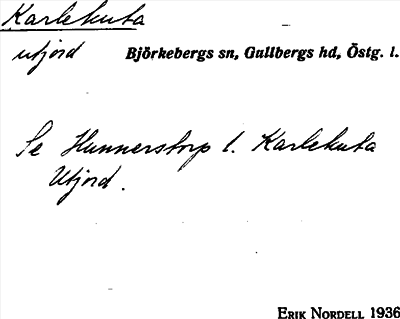 Karlekuta
utjord
Björkebergs sn, Gullbergs hd, Östg. l.
Se Hunnerstorp l. Karlekuta
Utjord.
ERIK NORDELL 1936